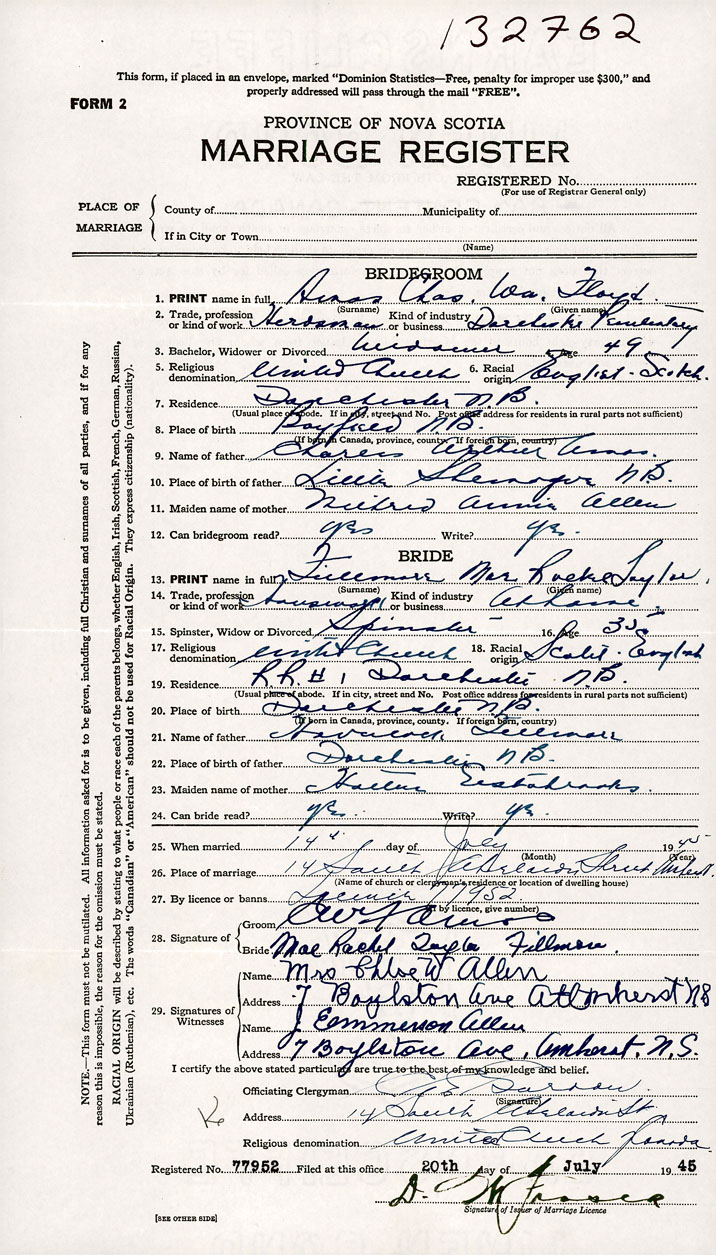 132762
This form, if placed in an envelope, marked "Dominion Statistics—Free, penalty for improper use $300," and
properly addressed will pass through the mail "FREE".
FORM 2
PROVINCE OF NOVA SCOTIA
MARRIAGE REGISTER
REGISTERED No.
(For use of Registrar General only)
PLACE OF MARRIAGE
County of Municipality of
If in City or Town
(Name)
BRIDEGROOM
1. PRINT name in full, Amos Chas. Wm. Floyd.
(Surname) (Given name)
2. Trade, profession or kind of work Herdsman Kind of industry or business Dorchester Penitentiary
3. Bachelor, Widower or Divorced Widower Age 49
5. Religious denomination United Church 6. Racial origin English-Scotch.
7. Residence Dorchester N.B.
(Usual place of abode. If in city, street and No. Post office address for residents in rural parts not sufficient)
8. Place of birth Bayfield N.B.
(If born in Canada, province, county. If foreign born, country)
9. Name of father Charles Arthur Amos.
10. Place of birth of father N.B.
11. Maiden name of mother Annie Allen
12. Can bridegroom read? yes Write? yes.
BRIDE
13. PRINT name in full, Fillmore Mae Taylor.
(Surname) (Given name)
14. Trade, profession or kind of work Housework Kind of industry or business At Home
15. Spinster, Widow or Divorced Spinster 16. Age 35
17. Religious denomination United Church 18. Racial origin Scotch-English
19. Residence R.R. # 1 Dorchester N.B.
(Usual place of abode. If in city, street and No. Post office address for residents in rural parts not sufficient)
20. Place of birth Dorchester N.B.
(If born in Canada, province, county. If foreign born, country)
21. Name of father Fillmore
22. Place of birth of father Dorchester N.B.
23. Maiden name of mother Estabrooks
24. Can bride read? yes. Write? yes.
25. When married 14th day of July 1945
(Month) (Year)
26. Place of marriage 14 South Adelaide Street Amherst.
(Name of church or clergyman's residence or location of dwelling house)
27. By licence or banns
(If by licence, give number)
28. Signature of
Groom Amos
Bride Mae Rachel Taylor Fillmore.
29. Signatures of Witnesses
Name Mrs Chloe W Allen
Address 7 Boylston Ave Amherst NS
Name J. Emmerson Allen
Address 7 Boylston Ave, Amherst. N.S.
I certify the above stated particulars are true to the best of my knowledge and belief.
Officiating Clergyman
(Signature)
Address 14 South Adelaide St.
Religious denomination United Church Canada.
Registered No. 77952 Filed at this office 20th day of July 1945
D. W Fraser
Signature of Issuer of Marriage Licence
[SEE OTHER SIDE]
NOTE.—This form must not be mutilated. All information asked for is to be given, including full Christian and surnames of all parties, and if for any
reason this is impossible, the reason for the omission must be stated.
RACIAL ORIGIN will be described by stating to what people or race each of the parents belongs, whether English, Irish, Scottish, French, German, Russian,
Ukrainian (Ruthenian), etc. The words "Canadian" or "American" should not be used for Racial Origin. They express citizenship (nationality).